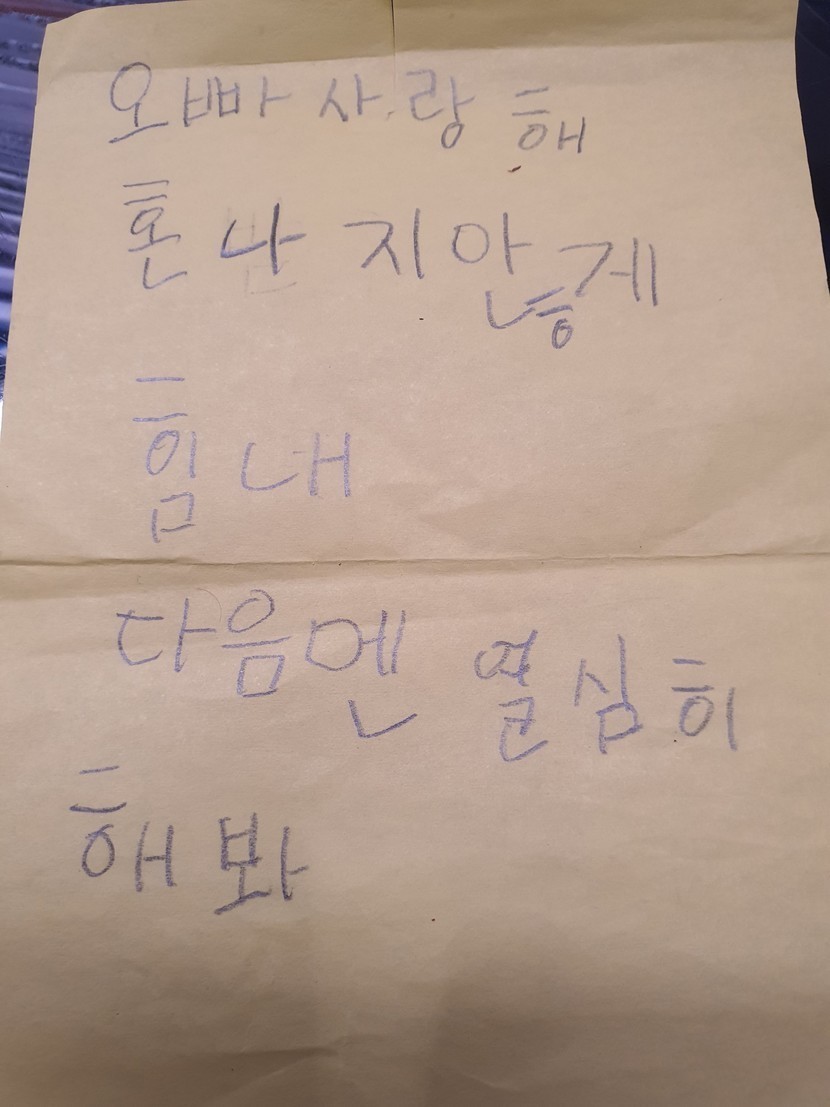 오빠 사랑해
혼나지 않게
힘내
다음엔 열심히
해봐